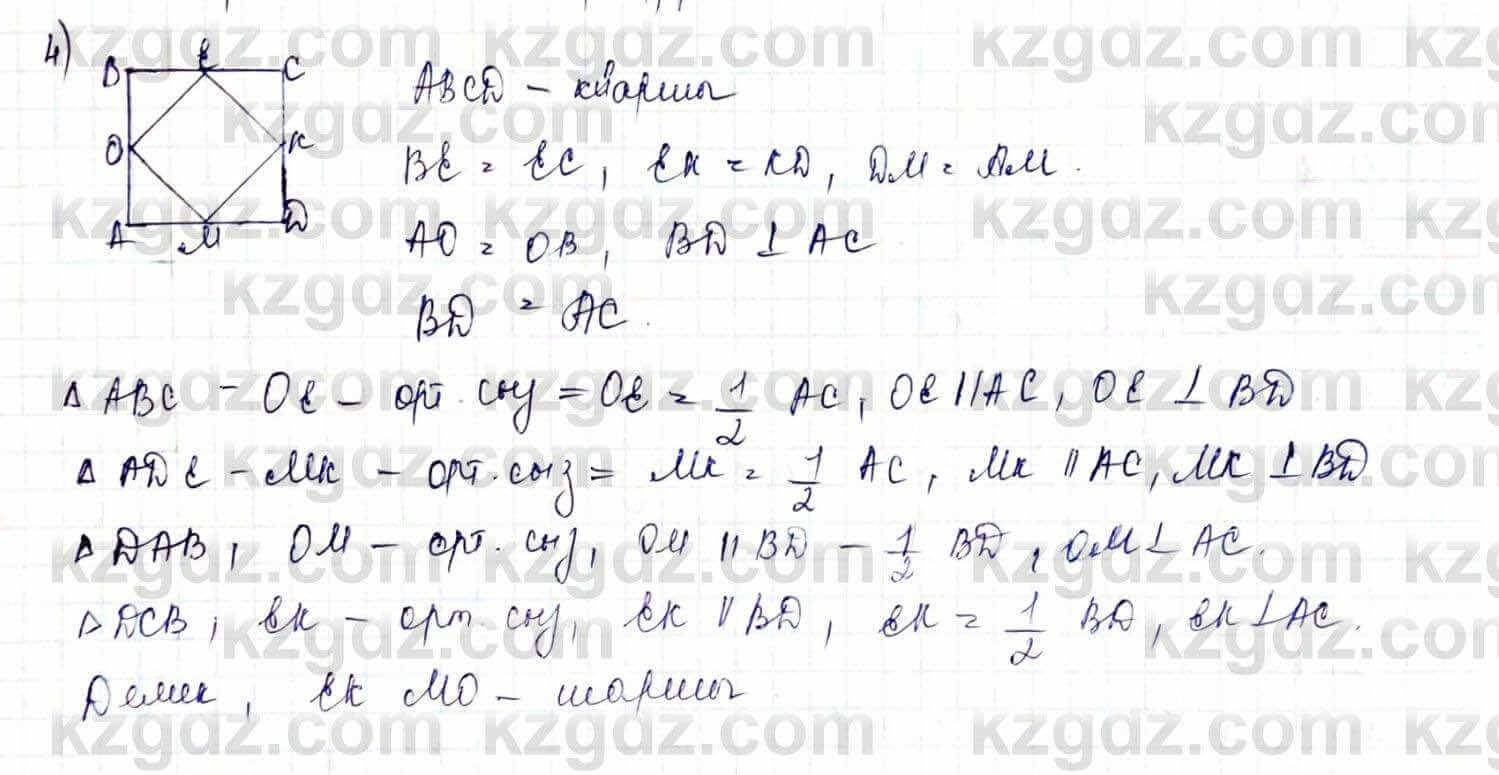 4)
B E C
O K
A M D
ABCD – квадраты
BE = EC, EK = KD, DM = AM.
AO = OB, BD ⊥ AC
BD = AC.
Δ ABC – OE – орт. сыз = OE = 1/2 AC, OE || AC, OE ⊥ BD
Δ ADC – MK – орт. сыз = MK = 1/2 AC, MK || AC, MK ⊥ BD
Δ DAB, OM – орт. сыз, OM || BD – 1/2 BD, OM ⊥ AC.
Δ DCB, EK – орт. сыз, EK || BD, EK = 1/2 BD, EK ⊥ AC.
Демек, EK MO – шаршы
kzgdz.com